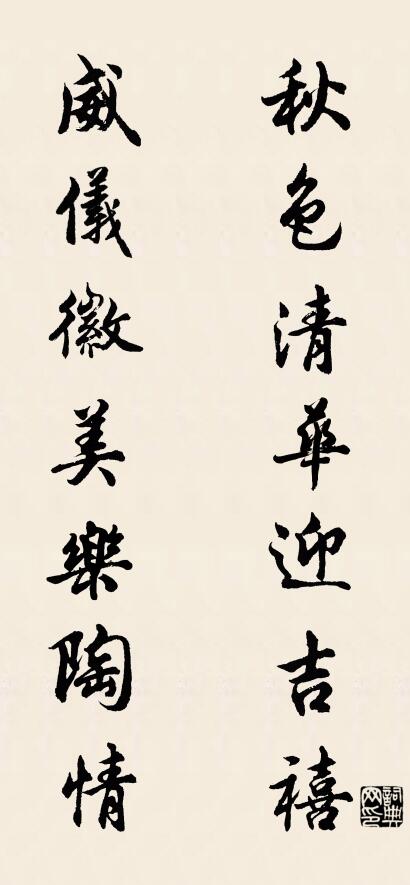 秋色清華迎吉禧
威儀徽美樂陶情
詞典网印